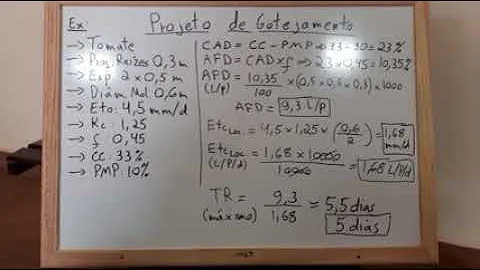 Ex: Projeto de Gotejamento
→ Tomate
→ Prof. Raízes 0,3 m
→ Esp. 2 x 0,5 m
→ Diâm. Mol. 0,6 m
→ Eto: 4,5 mm/d
→ Kc: 1,25
→ f 0,45
→ CC: 33%
→ PMP: 10%
CAD = CC - PMP ⇒ 33-10 = 23%
AFD = CAD x f ⇒ 23 x 0,45 = 10,35%
AFD (L/P) = 10,35/100 x (0,5 x 0,6 x 0,3) x 1000
AFD = 9,3 L/P
Etc Loc. = 4,5 x 1,25 x (0,6/2) = 1,68 mm/d
Etc Loc. (L/P/d) = 1,68 x 10000/10000 = 1,68 L/P/d
TR (máximo) = 9,3/1,68 = 5,5 dias
5 dias